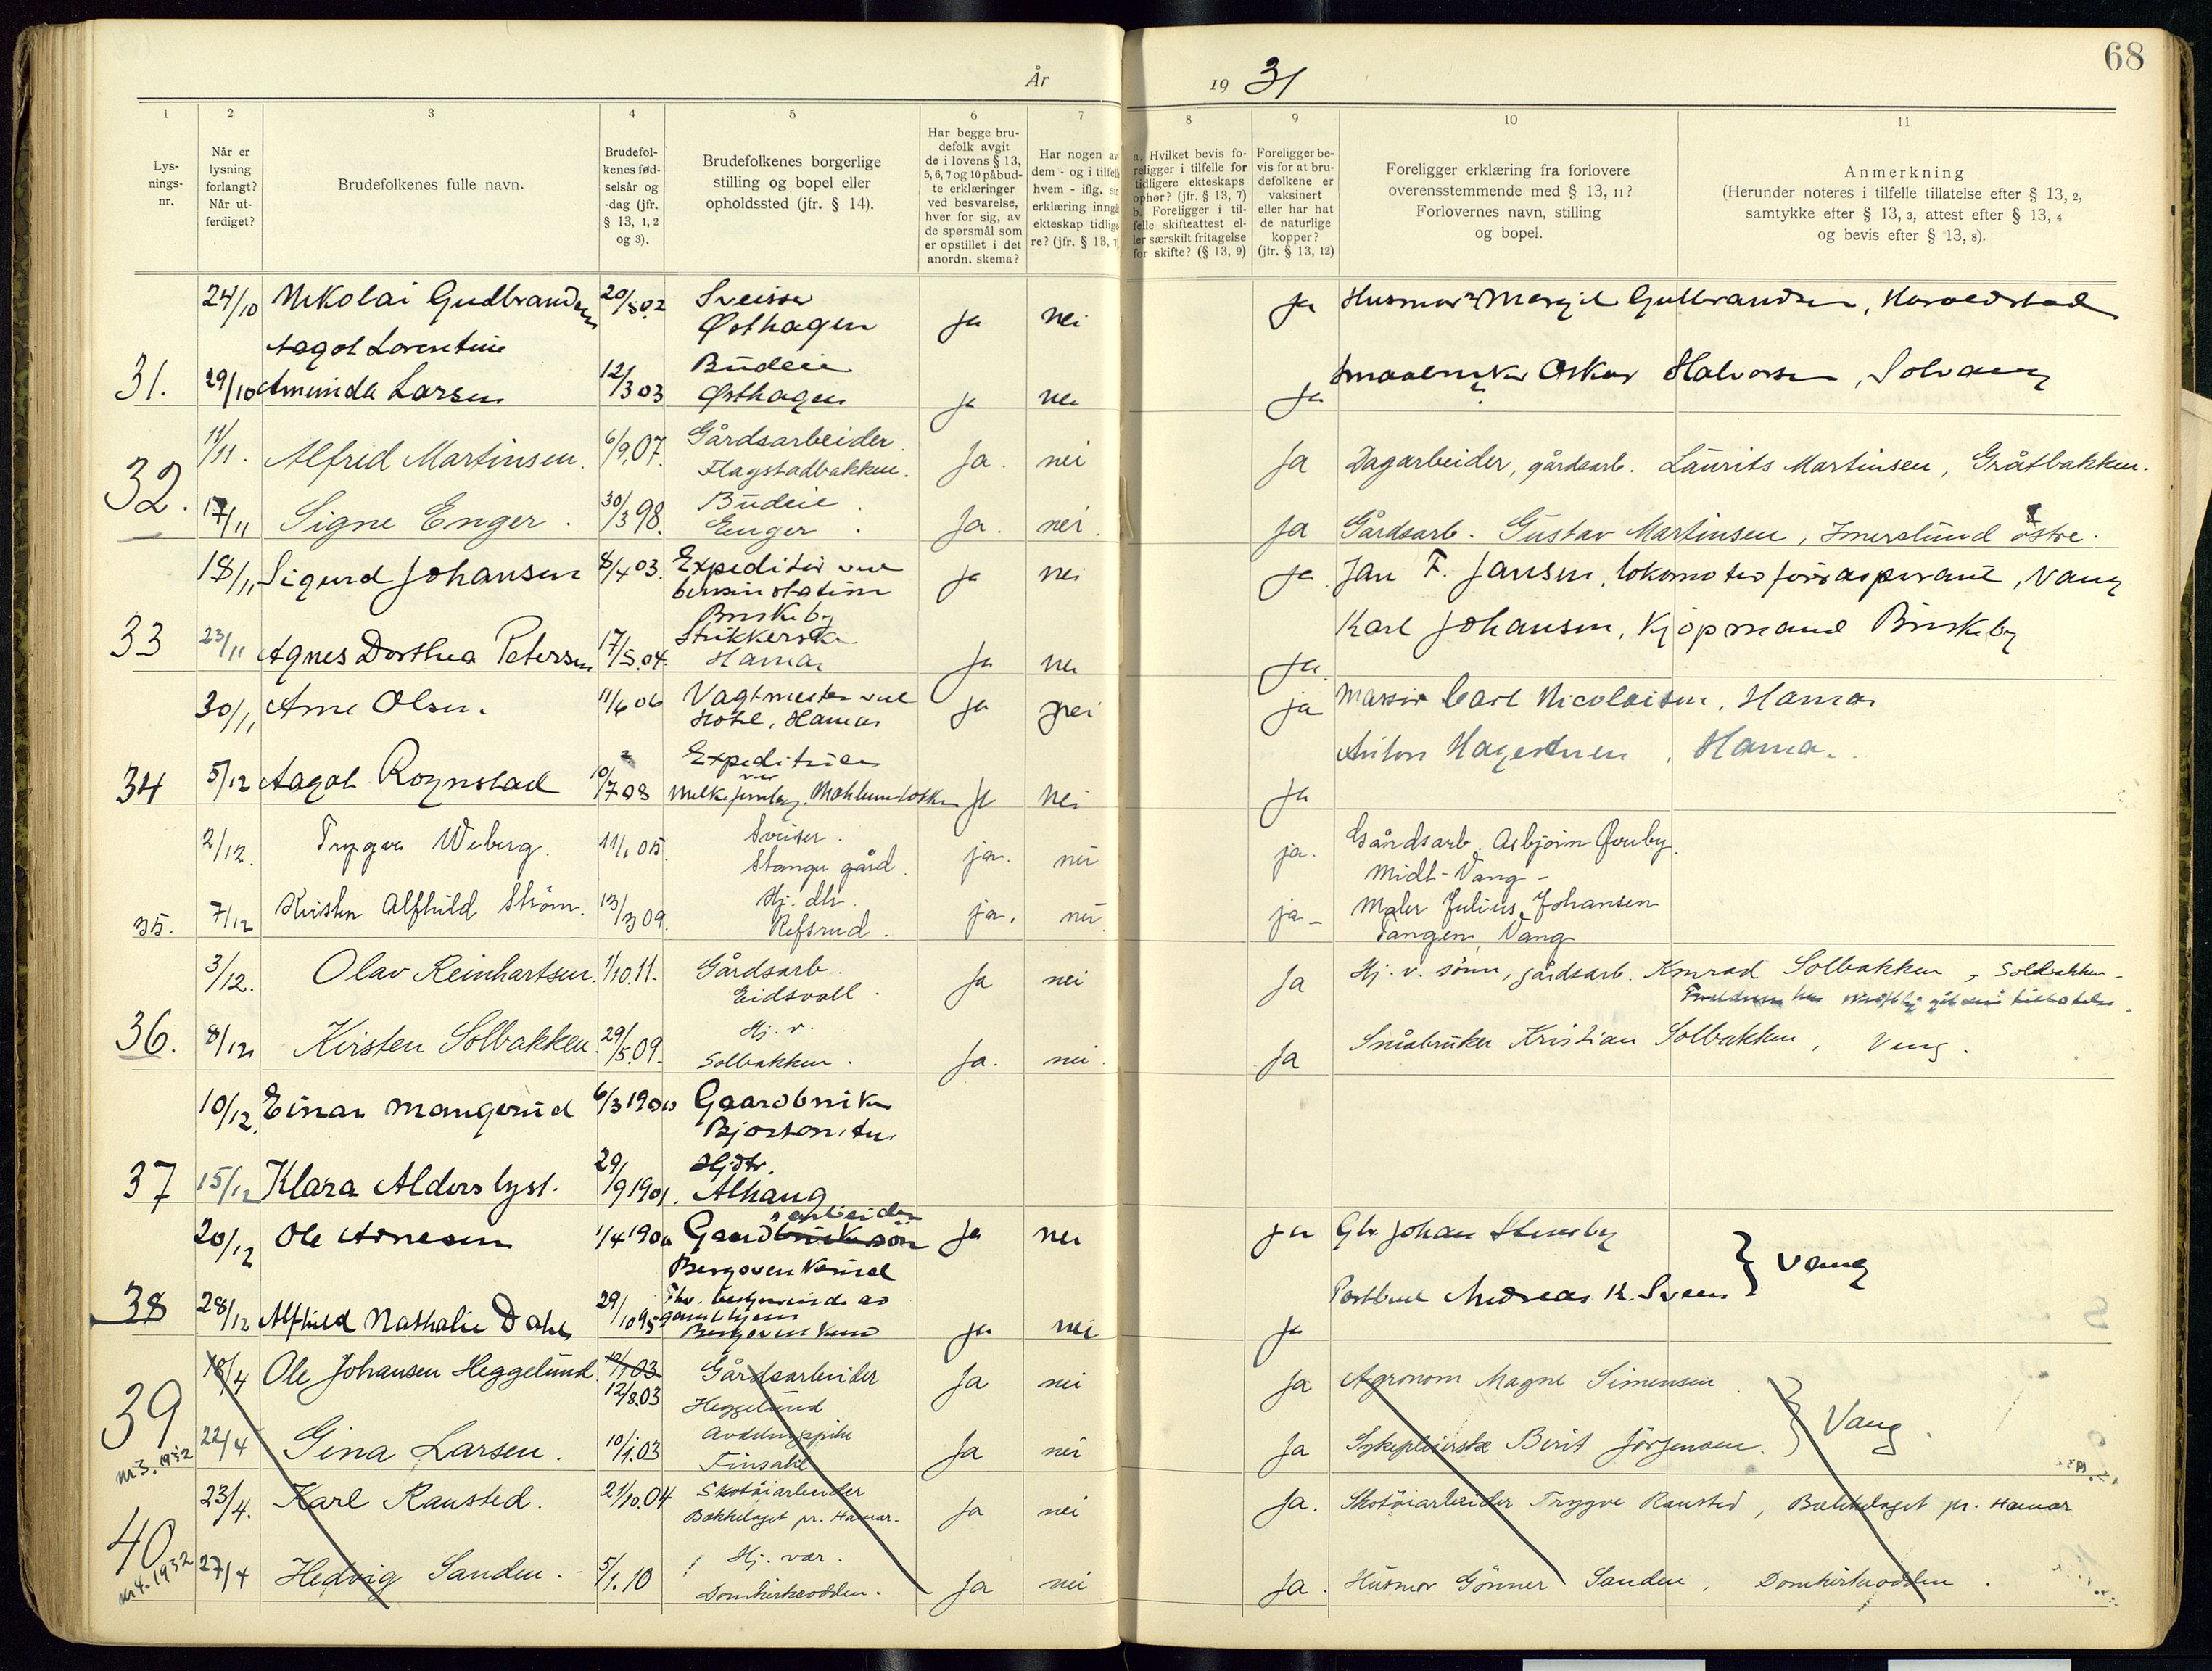 68
År 19 31
1 2 3 4 5 6 7 8 9 10 11
Lys-
nings-
nr.
Når er
lysning
forlangt?
Når ut-
ferdiget?
Brudefolkenes fulle navn.
Brudefol-
kenes fød-
selsår og
-dag (jfr.
§ 13, 1, 2
og 3).
Brudefolkenes borgerlige
stilling og bopel eller
opholdssted (jfr. § 14).
Har begge bru-
defolk avgit
de i lovens § 13,
5, 6, 7 og 10 påbud-
te erklæringer
ved besvarelse,
hver for sig, av
de spørsmål som
er opstillet i det
anordn. skema?
Har nogen av
dem - og i tilfelle
hvem - iflg. sin
erklæring inngå
ekteskap tidlige-
re? (jfr. § 13, 7)
a. Hvilket bevis fo-
religger i tilfelle for
tidligere ekteskaps
ophør? (jfr. § 13, 7)
b. Foreligger i til-
felle skifteattest el-
ler særskilt fritagelse
for skifte? (§ 13, 9)
Foreligger be-
vis for at bru-
defolkene er
vaksinert
eller har hat
de naturlige
kopper?
(jfr. § 13, 12)
Foreligger erklæring fra forlovere
overensstemmende med § 13, 11?
Forlovernes navn, stilling
og bopel.
Anmerkning
(Herunder noteres i tilfelle tillatelse efter § 13, 2,
samtykke efter § 13, 3, attest efter § 13, 4
og bevis efter § 13, 8).
24/10 Nikolai Gudbrandsen 20/5 02 Sveisser ja nei ja Husmor Margit Gulbrandsen, Haraldstad
Østhagen
Aagot Lorentine Budeie
31. 29/10 Amunda Larsen 12/3 03 Østhagen ja nei ja Smaabruker Oskar Halvorsen, Solvang
11/11. Alfred Martinsen. 6/9.07. Gårdsarbeider Ja. nei Ja Dagarbeider, gårdsarb. Laurits Martinsen, Gråtbakken.
Flagstadbakken.
32. 17/11 Signe Enger. 30/3 98. Budeie Ja. nei. Ja Gårdsarb. Gustav Martinsen, Imerslund østre.
Enger.
18/11 Sigurd Johansen 8/4 03. Expeditør ved ja nei ja Jan F. Jansen, lokomotivføraspirant, Vang
bensinstation
Briskeby
33 23/11 Agnes Dorthea Petersen 17/5.04. Strikkerska ja nei ja. Karl Johansen, Kjøpmand Briskeby
Hamar
30/11 Arne Olsen. 11/6 06 Vagtmester ved ja nei ja Massør Carl Nicolaisen, Hamar
Hotel, Hamar
34 5/12 Aagot Rognstad 10/7 08 Expeditrice ja nei ja Anton Hagestuen, Hamar.
ved
2/12. Trygve Weberg. 11/1 05. Sveiser. ja. nei ja. Gårdsarb. Asbjørn
Stange gård. Midt-Vang -
35. 7/12 Kirsten Alfhild Strøm. 13/3 09. Hj. dtr. ja. nei. ja - Maler Julius Johansen
Refsrud. Tangen, Vang
3/12. Olav Reinhartsen. 1/10.11. Gårdsarb. Ja nei Ja Hj. v. sønn, gårdsarb. Konrad Solbakken, Solbakken -
Eidsvoll.
36. 8/12 Kirsten Solbakken. 29/5.09. Hj. v. Ja. nei. Ja Småbruker Kristian Solbakken, Vang.
Solbakken.
10/12. Einar Mangerud 6/3 1900 Gaardbruker
37 15/12 Klara Alderslyst. 29/9 1901. Hjdtr.
Alhaug
20/12 Ole Arnesen 1/4 1900 Gaardsarbeider ja nei ja Gbr. Johan Stensby
} Vang
38 28/12 Alfhild Nathalie Dahl 29/10 95 ja nei ja Postbud Andreas K. Sveen
gamlehjem
18/4 Ole Johansen Heggelund 10/1 03 Gårdsarbeider Ja nei Ja Agronom Magne Simensen.
12/8.03 Heggelund
} Vang.
39 22/4 Gina Larsen. 10/1.03 Avdelingspike Ja nei Ja Sykepleierske Birit Jørgensen.
nr 3. 1932 Finsahl
23/4. Karl Ransted. 21/10.04 Skotøiarbeider Ja nei Ja. Skotøiarbeider Trygve Ransted, Bækkelaget pr. Hamar
Bækkelaget pr. Hamar.
40 27/4 Hedvig Sanden. 5/1.10 Hj. vær. Ja nei Ja. Husmor Gönner Sanden, Domkirkeodden.
nr 4. 1932 Domkirkeodden.